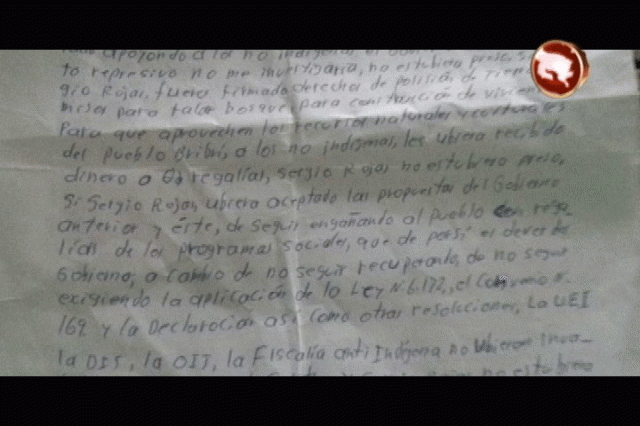 apoyando a los no indigenas el Gobier
to represivo no me investigaria, no estubiera preso, si
gio Rojas, fuera firmado derecho de posisión de Tierra
misos para talar bosque, para construcción de vivien
Para que aprovechen los recursos naturales y culturales
del pueblo Bribri, a los no indigenas, les ubiera recibido
dinero o regalias, Sergio Rojas no estubiera preso,
Si Sergio Rojas, ubiera aceptado las propuestas del Gobierno
anterior y éste, de seguir engañando al pueblo con rega-
lias de los programas sociales, que de por si es deber del
Gobierno, a cambio de no seguir recuperando, de no seguir
exigiendo la aplicación de la Ley N° 6.172, el Convenio N°
169 y la Declaración así como otras resoluciones, La UEI
la DIS, la OIJ, la Fiscalía anti Indígena no Ubieran inva-
no estubiera